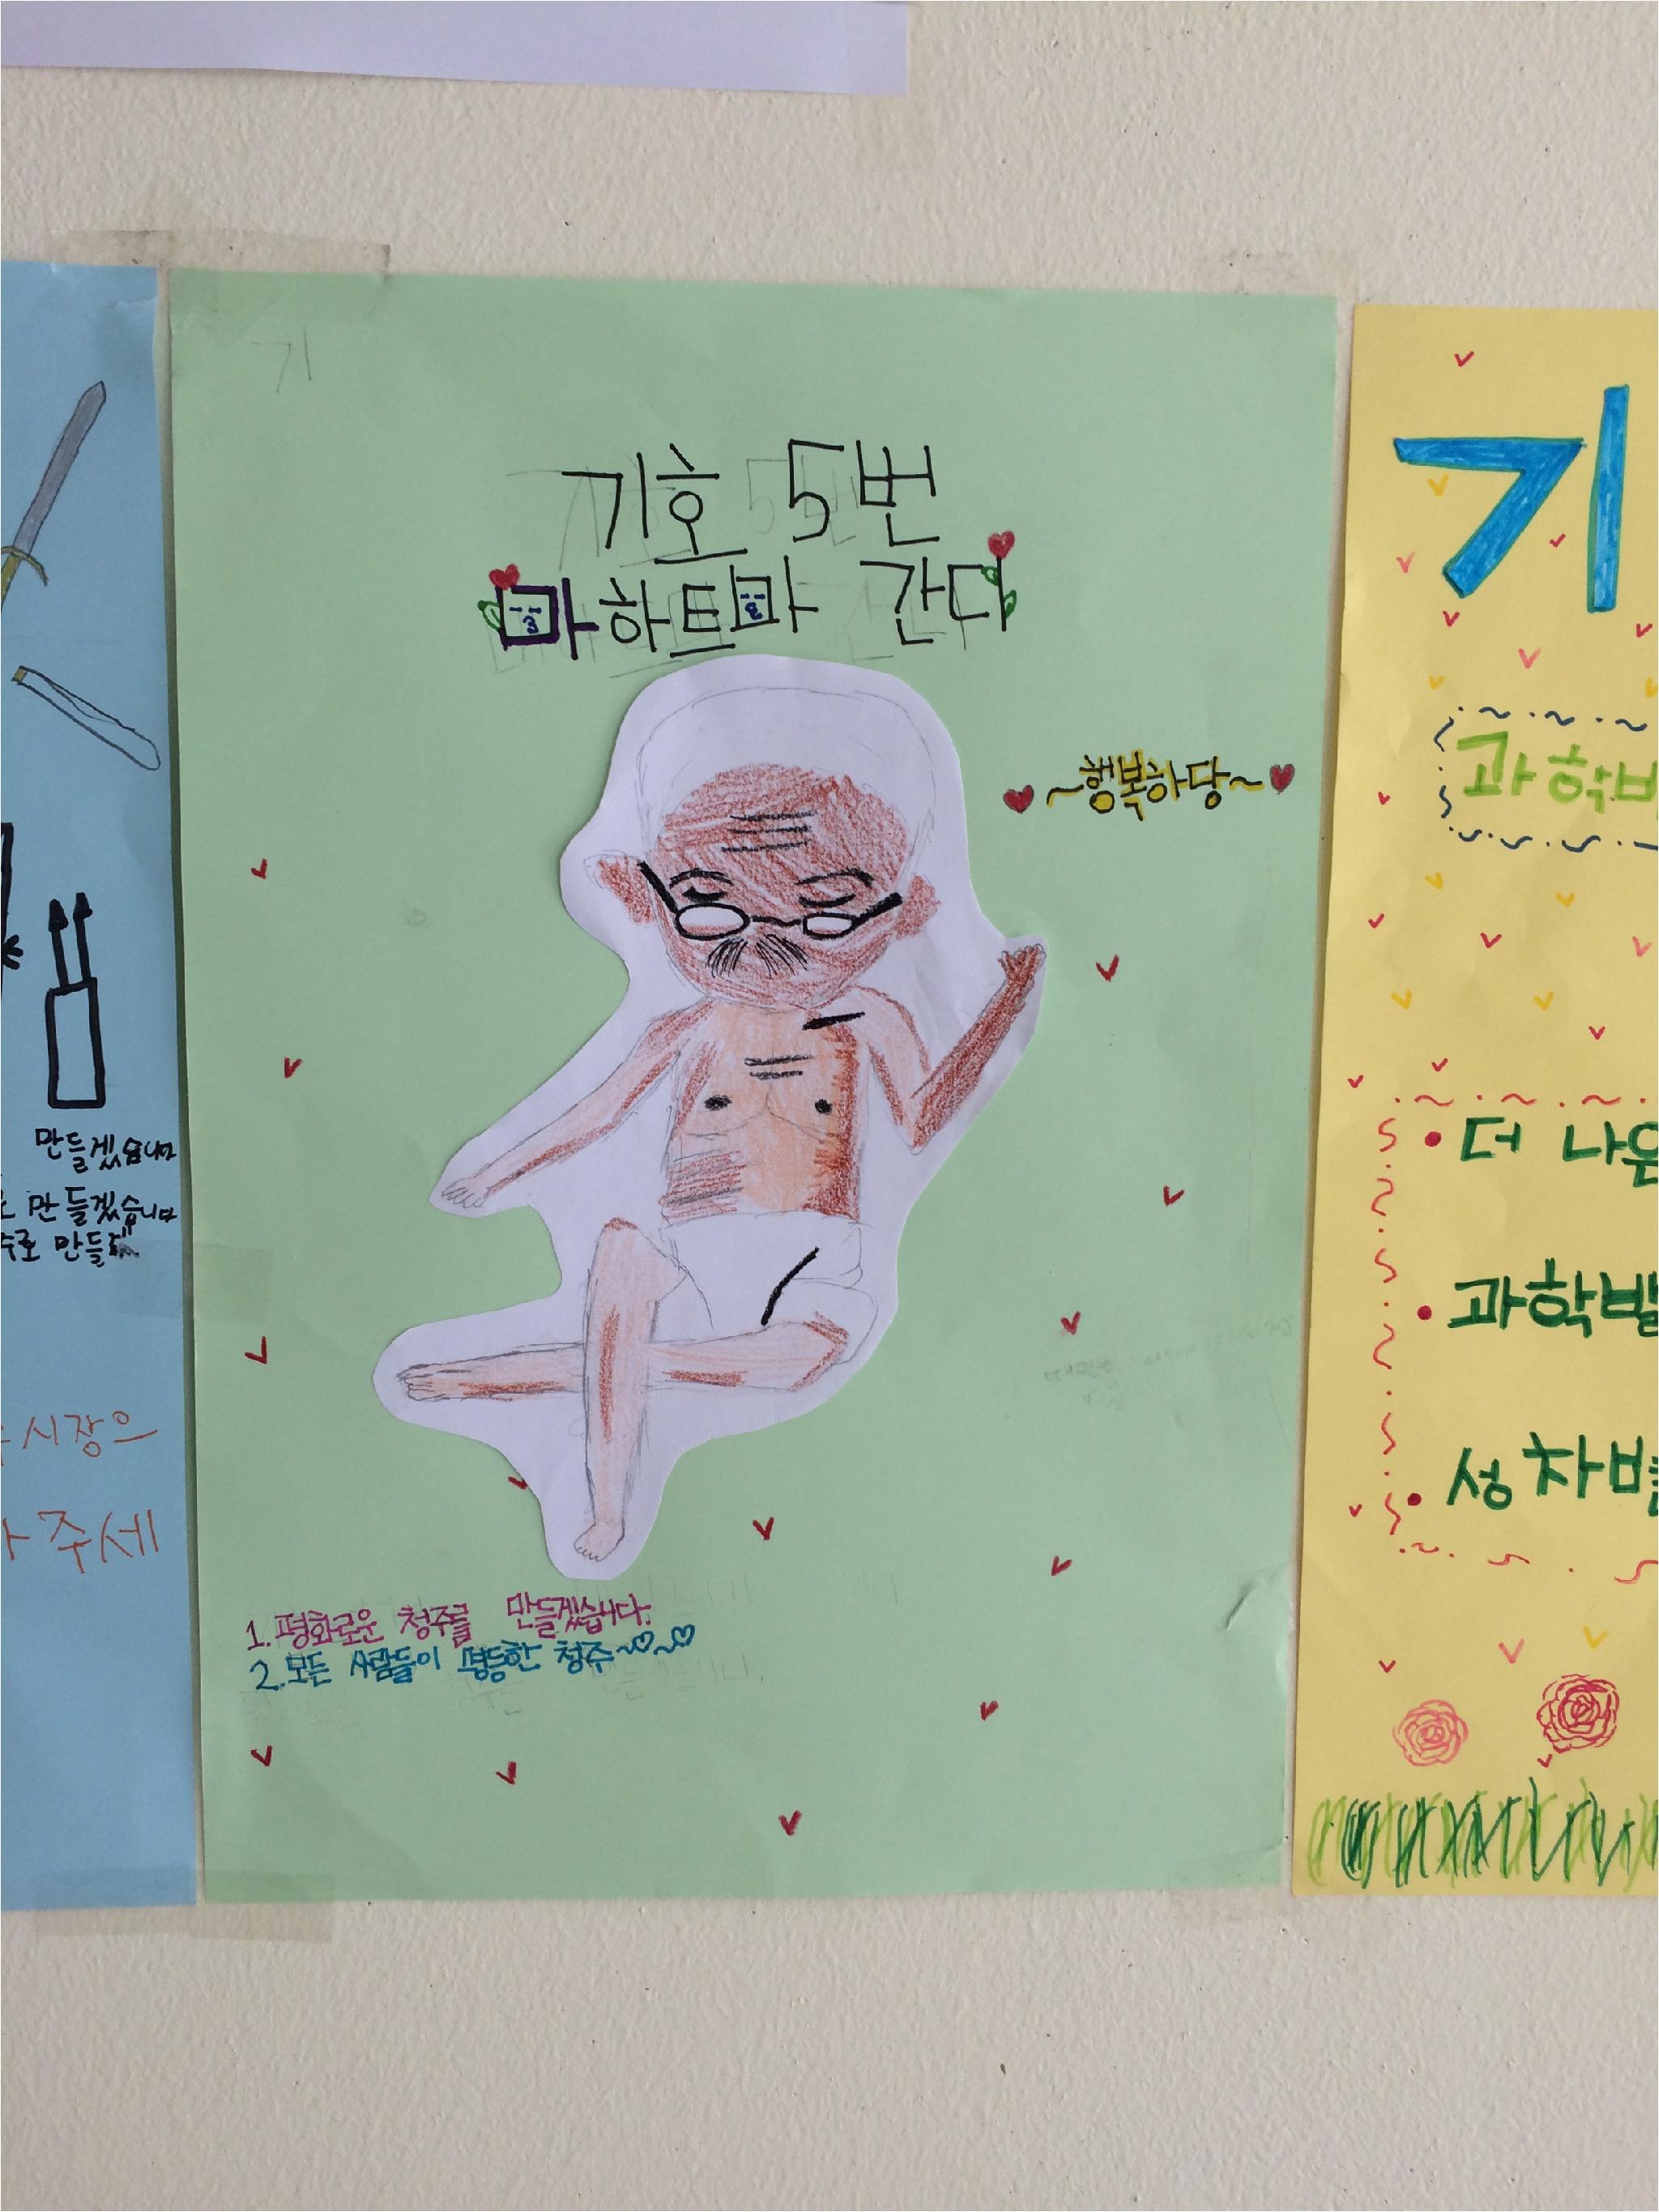 기
기호 5번
마하트마 간디
~행복하당~
1. 평화로운 청주를 만들겠습니다.
2. 모든 사람들이 평등한 청주~♡~♡
만들겠습니다
만들겠습니다
로 만들
시장으
주세
기
과학
더 나은
과학발
성차별